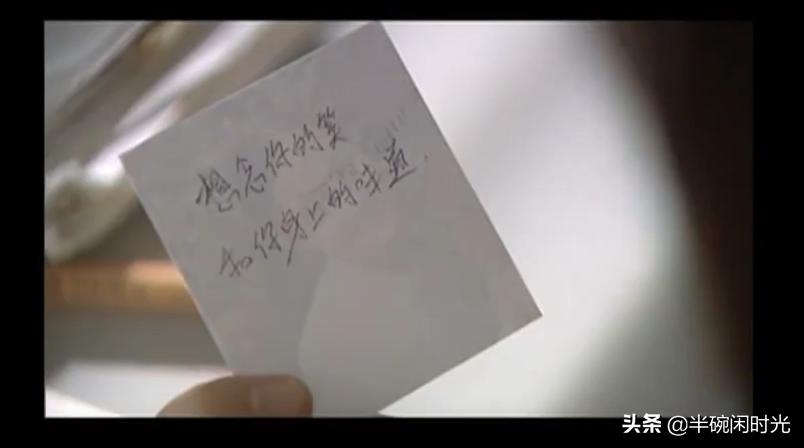 想念你的笑
和你身上的味道.
头条 @半碗闲时光